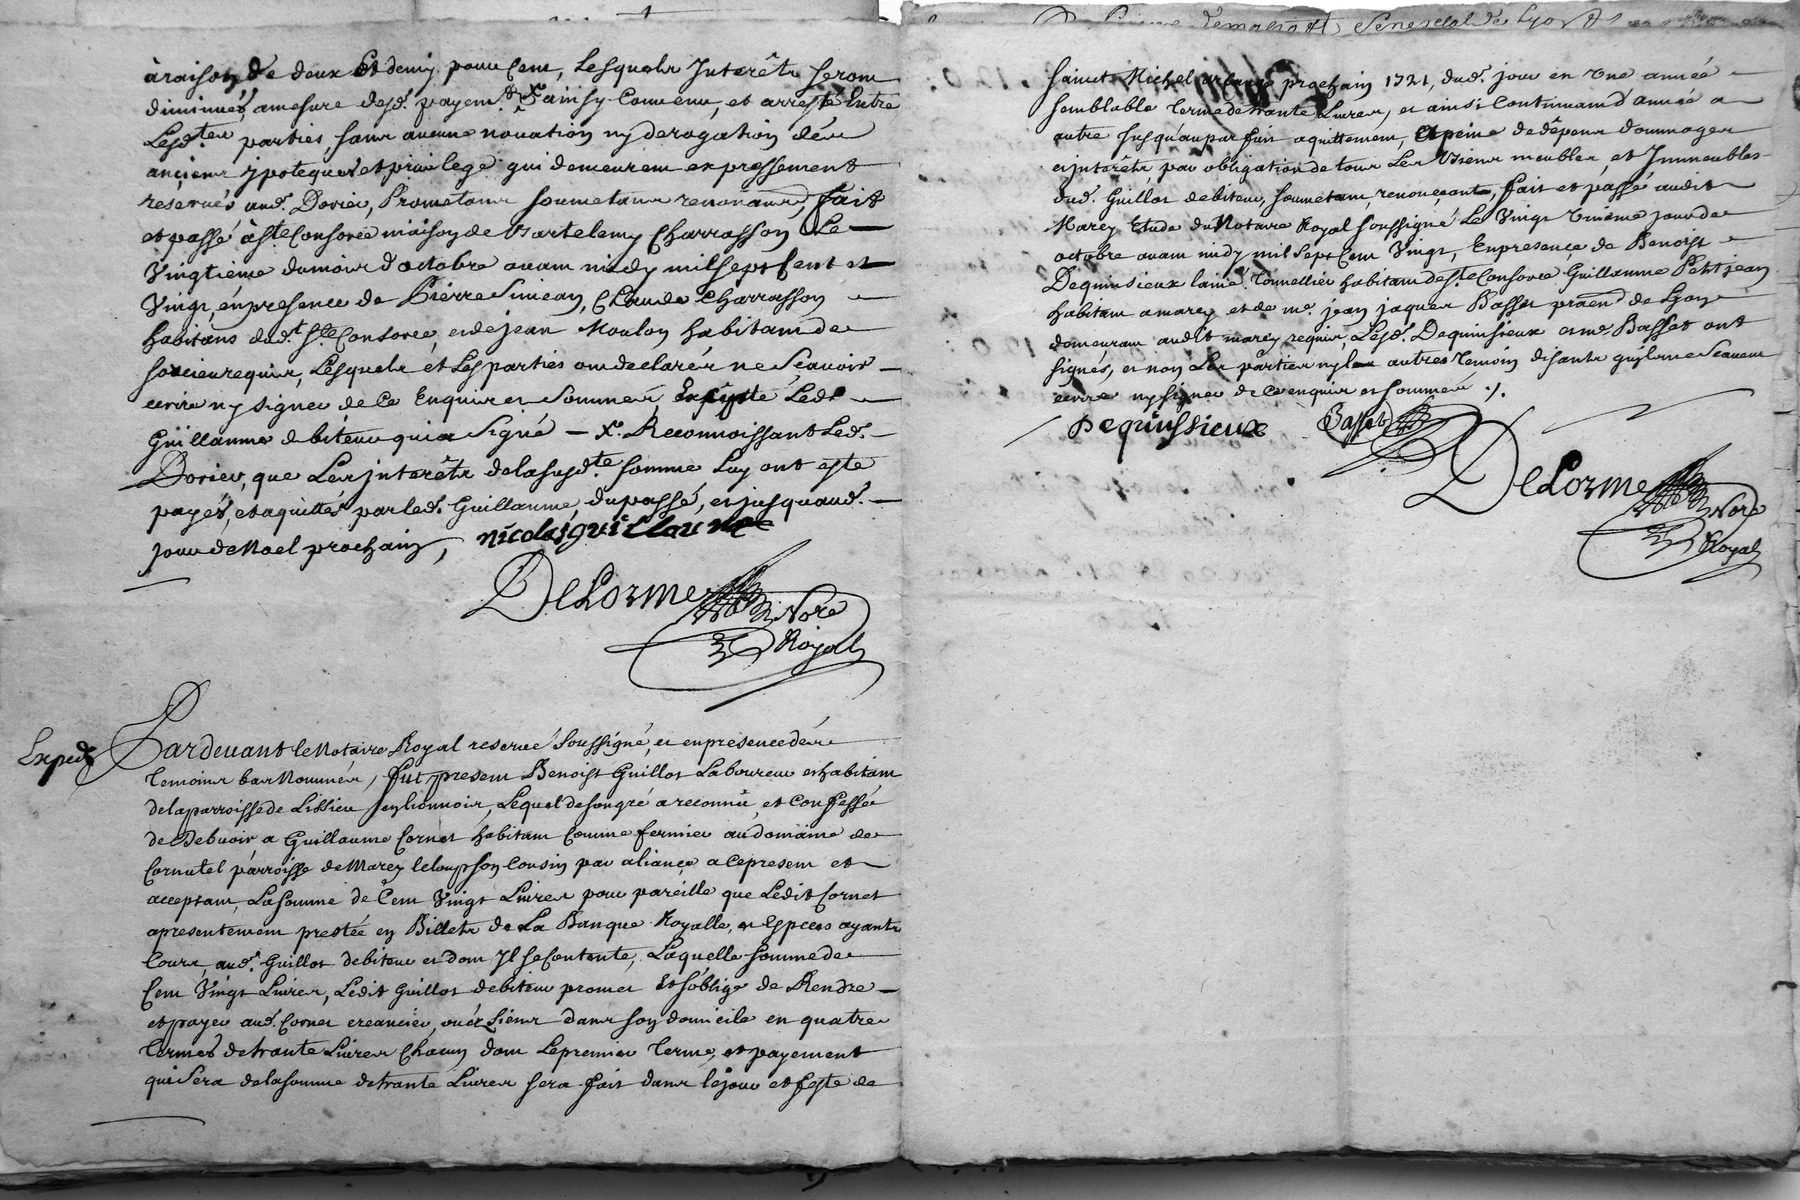 à raison de deux et demy pour Cent, Lesquels Interêts seront
diminués, amesure desd. payemts. X ainsy Convenu, et arresté Entre
Lesdtes parties, sans aucune novation ny derogation des
anciens ypoteques et privilege qui demeurent expressement
reservés aud. Dorier, Prometans soumetans renonans, fait
et passé à Ste Consorce maison de Bartelemy Charrasson Le
Vingtieme du mois d'octobre avant midy mil sept Cent et
Vingt, en presence de Pierre Simean, Claude Charrasson
habitans dudt. Ste Consorce, et de jean Moulon habitant de
requis, Lesquels et Les parties ont declarés ne Sçavoir
ecrire ny signer de Ce Enquis et Sommés Excepté Ledt
Guillaume debiteur qui a Signé – X. Reconnoissant Led.
Dorier, que Les interêts de la susdte. somme Luy ont esté
payés, et aquittés par led. Guillaume, du passé, et jusqu'aud.
jour de Noel prochain,
nicolas guillaume
DeLorme
Nore
Royal
Exped.
Pardevant le Notaire Royal reservé Soussigné, et en presence des
temoins bas Nommés, fut present Benoist Guillot Laboureur et habitant
de la parroisse de Lissieu en lionnois, Lequel de son gré a reconnu, et Confessé
de Debvoir a Guillaume Cornet habitant Comme fermier au domaine de
Cornutel parroisse de Marcy le loup son Cousin par aliance a Ce present et
acceptant, La somme de Cent Vingt Livres pour pareille que Ledit Cornet
a presentement prestée en Billets de La Banque Royalle, et Especes ayants
Cours, aud. Guillot debiteur et dont Il se Contente, Laquelle somme de
Cent Vingt Livres, Ledit Guillot debiteur promet Et s'oblige de Rendre
et payer aud. Cornet creancier, ou és siens dans son domicile en quatre
termes de trante Livres Chacun dont Le premier terme, et payement
qui Sera de la somme de trante Livres sera fait dans le jour et feste de
Senechal de Lyon
Sainct Michel prochain 1721, dud. jour en Une année
semblable terme de trante Livres, et ainsi Continuant d'année a
autre jusqu'au parfait aquittement, a peine de dêpens dommages
et interêts, par obligation de tous Les Biens meubles, et Immeubles
dud. Guillot debiteur, soumetant, renonçant, fait et passé audit
Marcy Etude du Notaire Royal soussigné Le Vingt Unieme jour de
octobre avant midy mil Sept Cent Vingt, En presence de Benoist
Dequinsieux lainé Tonnellier habitant de Ste. Consorce Guillaume Petitjean
habitant a marcy et de me. jean jaques Basset praend de Lyon
demeurant audit marcy requis, Lesd. Dequinsieux et me Basset ont
signés, et non Les parties ny les autres temoin disants qu'ils ne Scavent
ecrire ny signer de Ce enquis et Sommés ./.
Dequinssieux Basset
DeLorme
Nore
Royal